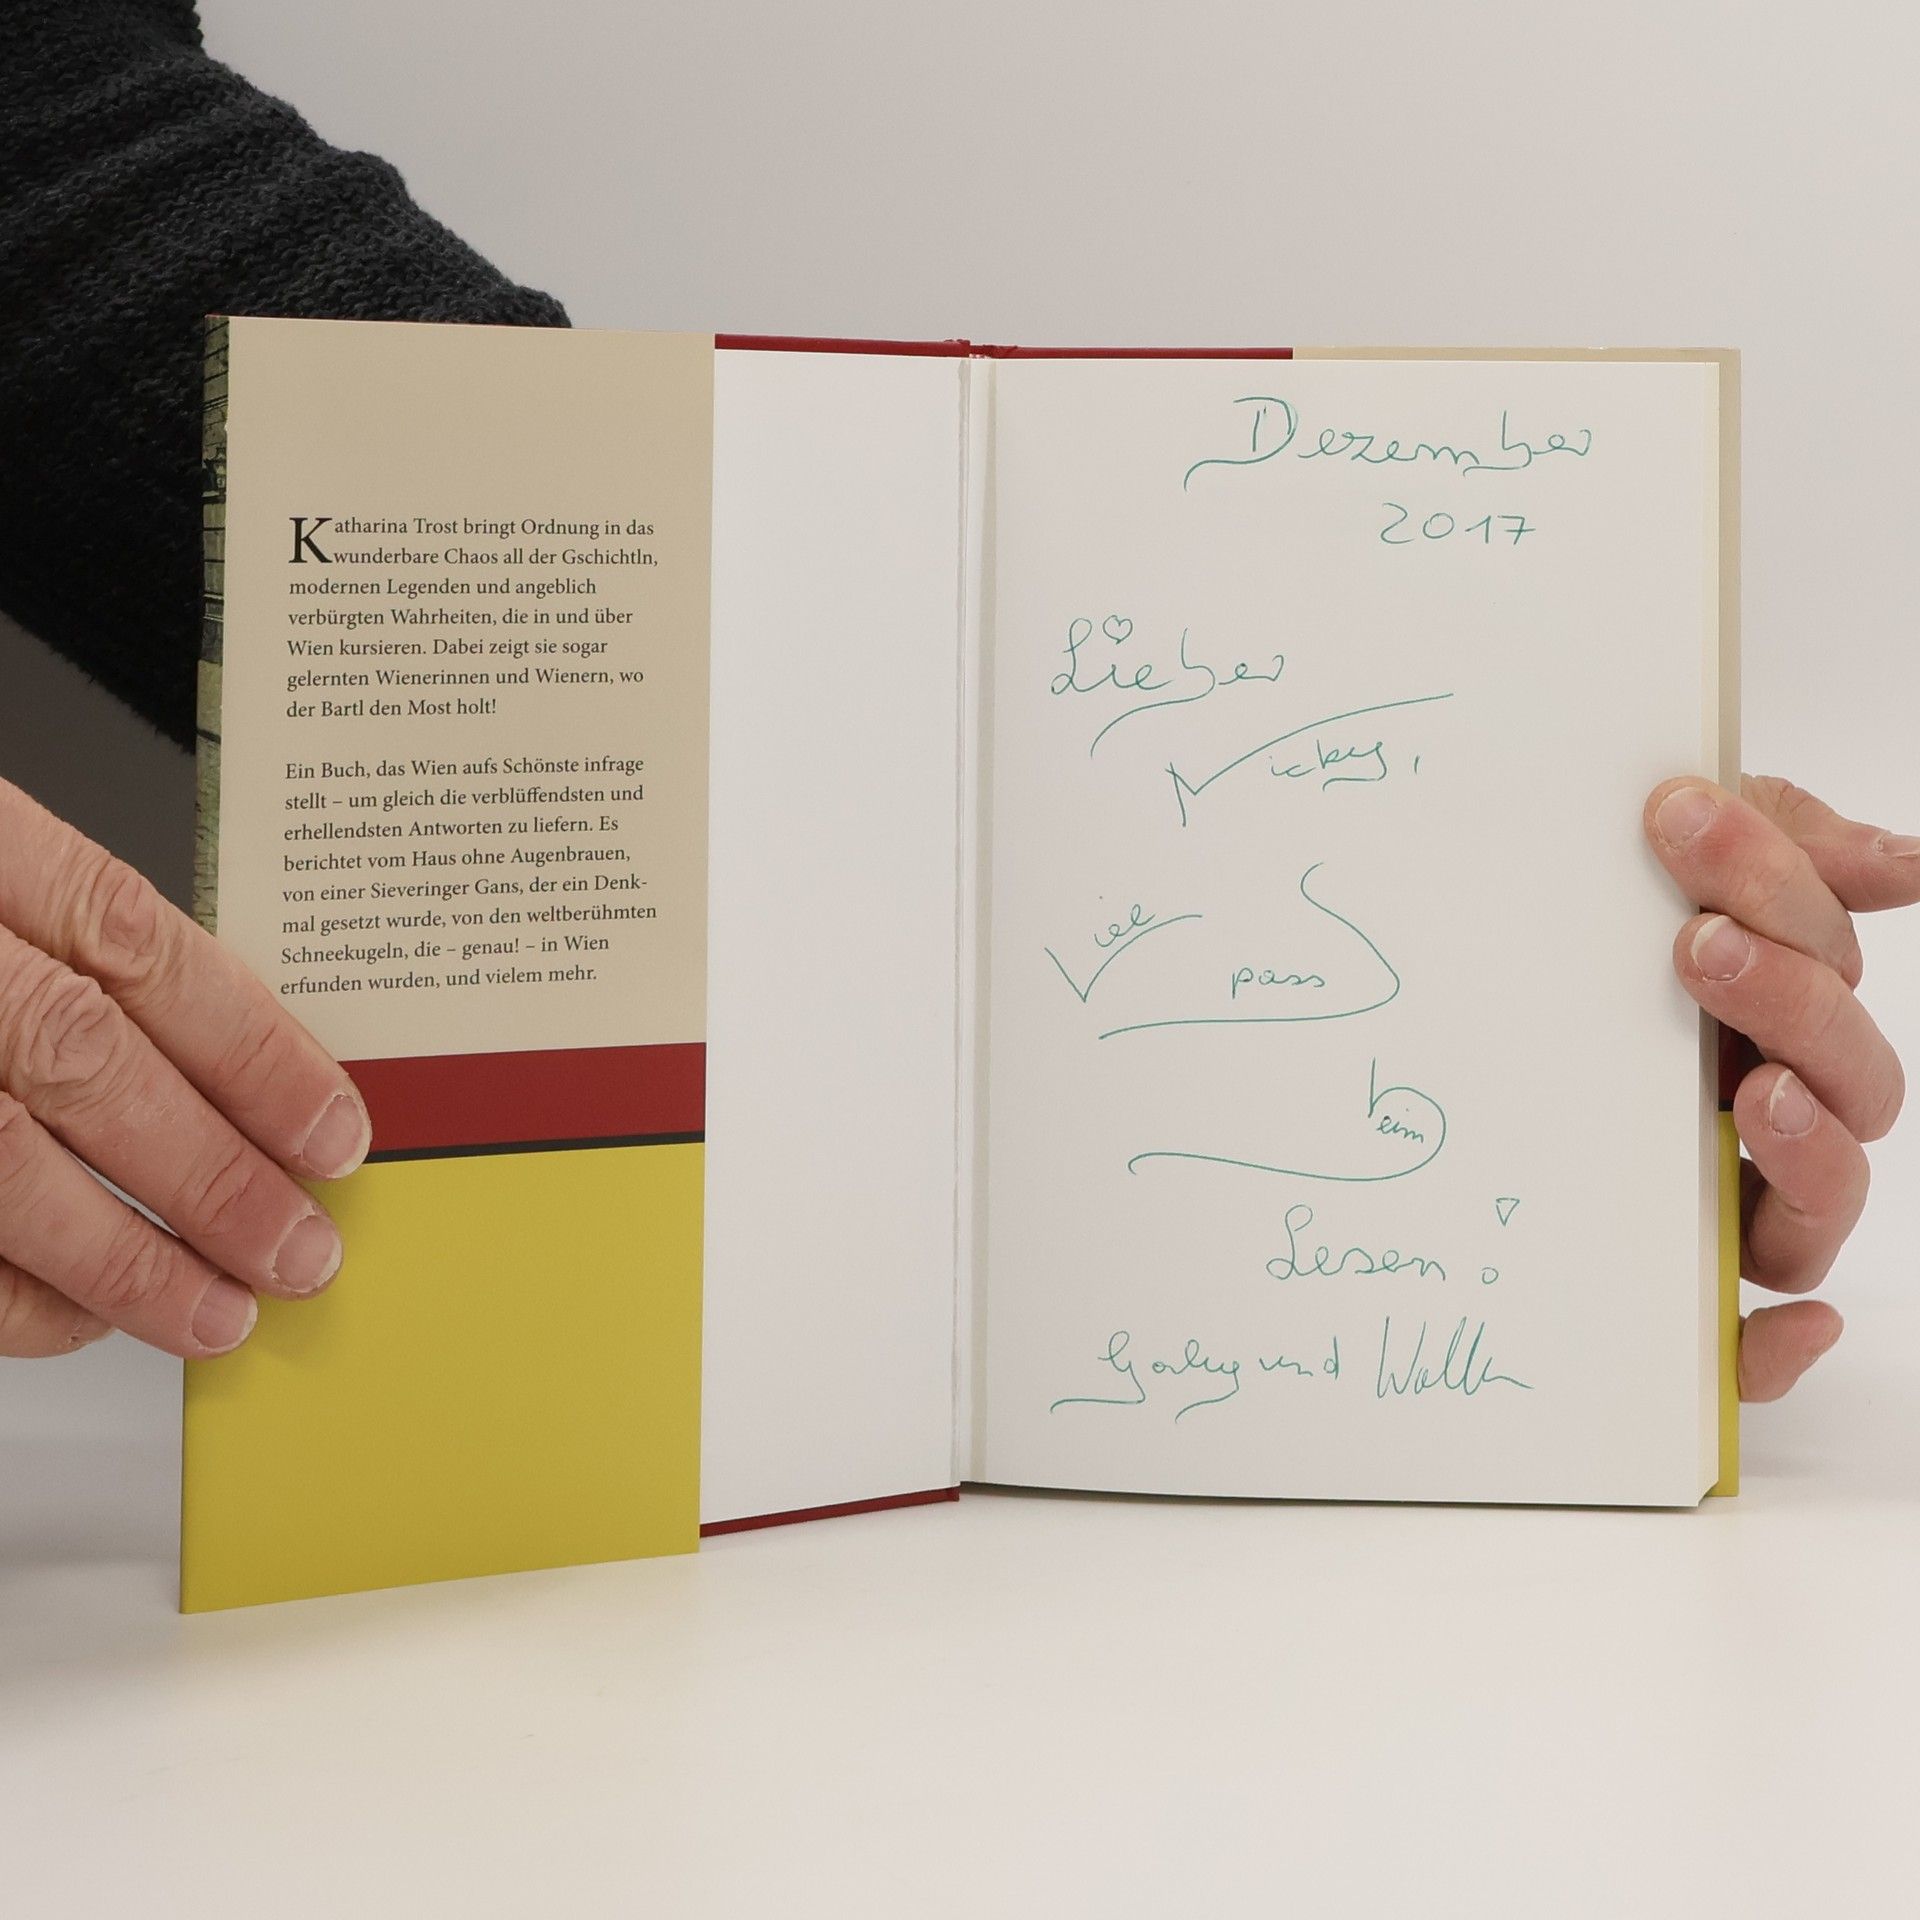 Katharina Trost bringt Ordnung in das
wunderbare Chaos all der Gschichtln,
modernen Legenden und angeblich
verbürgten Wahrheiten, die in und über
Wien kursieren. Dabei zeigt sie sogar
gelernten Wienerinnen und Wienern, wo
der Bartl den Most holt!
Ein Buch, das Wien aufs Schönste infrage
stellt – um gleich die verblüffendsten und
erhellendsten Antworten zu liefern. Es
berichtet vom Haus ohne Augenbrauen,
von einer Sieveringer Gans, der ein Denk-
mal gesetzt wurde, von den weltberühmten
Schneekugeln, die – genau! – in Wien
erfunden wurden, und vielem mehr.
Dezember
2017
Lieber
Nicky,
Viel
Spass
beim
Lesen!
und